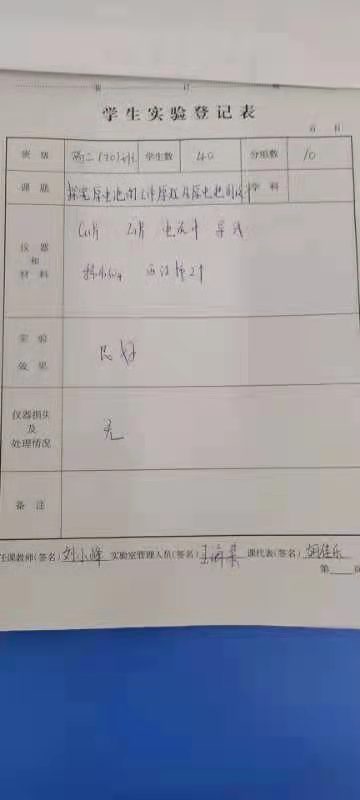 学生实验登记表
月 日
班级 高二(20)班 学生数 40 分组数 10
课题 探究原电池的工作原理及原电池的设计 学科
仪器和材料
Cu片 Zn片 电流计 导线
稀H₂SO₄
实验效果 良好
仪器损失及处理情况 无
备注
任课教师(签名) 刘小峰 实验室管理人员(签名) 课代表(签名) 胡佳乐
第 页